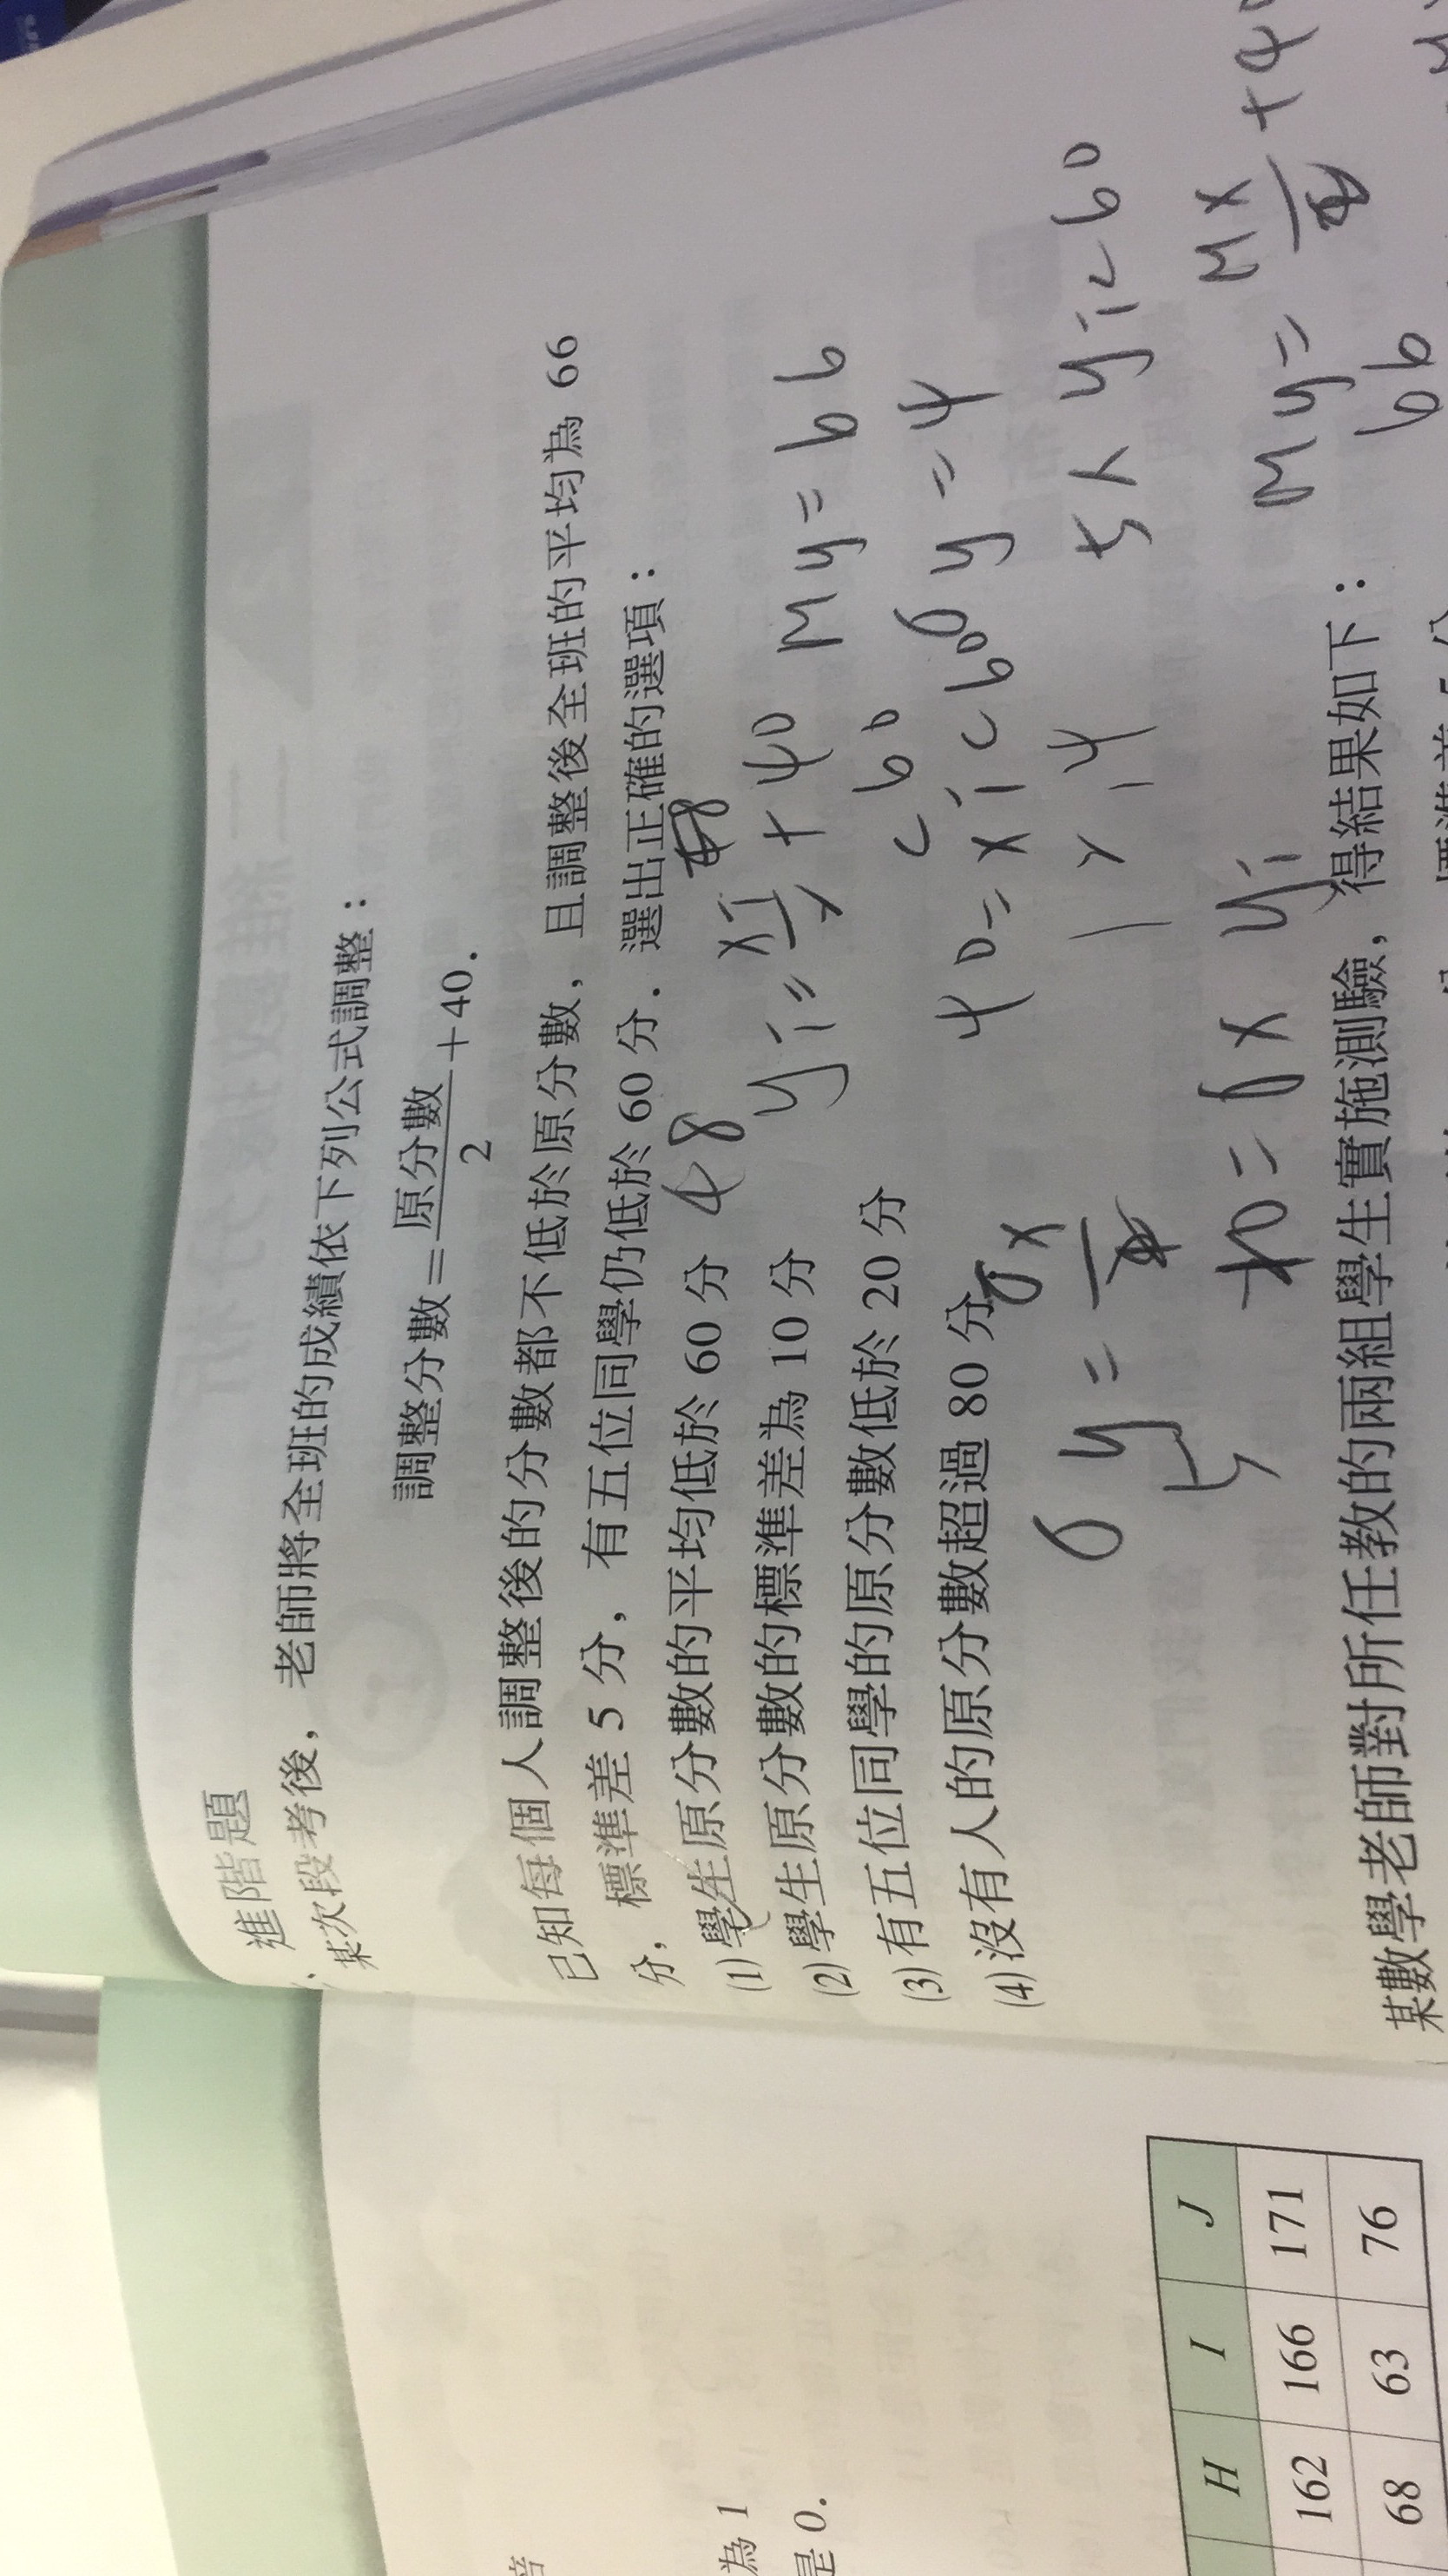 進階題
某次段考後，老師將全班的成績依下列公式調整：
調整分數＝原分數/2＋40．
已知每個人調整後的分數都不低於原分數，且調整後全班的平均為 66
分，標準差 5 分，有五位同學仍低於 60 分．選出正確的選項：
(1) 學生原分數的平均低於 60 分
(2) 學生原分數的標準差為 10 分
(3) 有五位同學的原分數低於 20 分
(4) 沒有人的原分數超過 80 分
48
yi = xi/2 + 40
My = 66
< 60
σy = 4
40 = xi < 60
5人 yi < 60
σy = σx/2
5
10 = σx
yi
My = Mx/2 + 40
66
某數學老師對所任教的兩組學生實施測驗，得結果如下：
H I J
162 166 171
68 63 76
為 1
是 0．